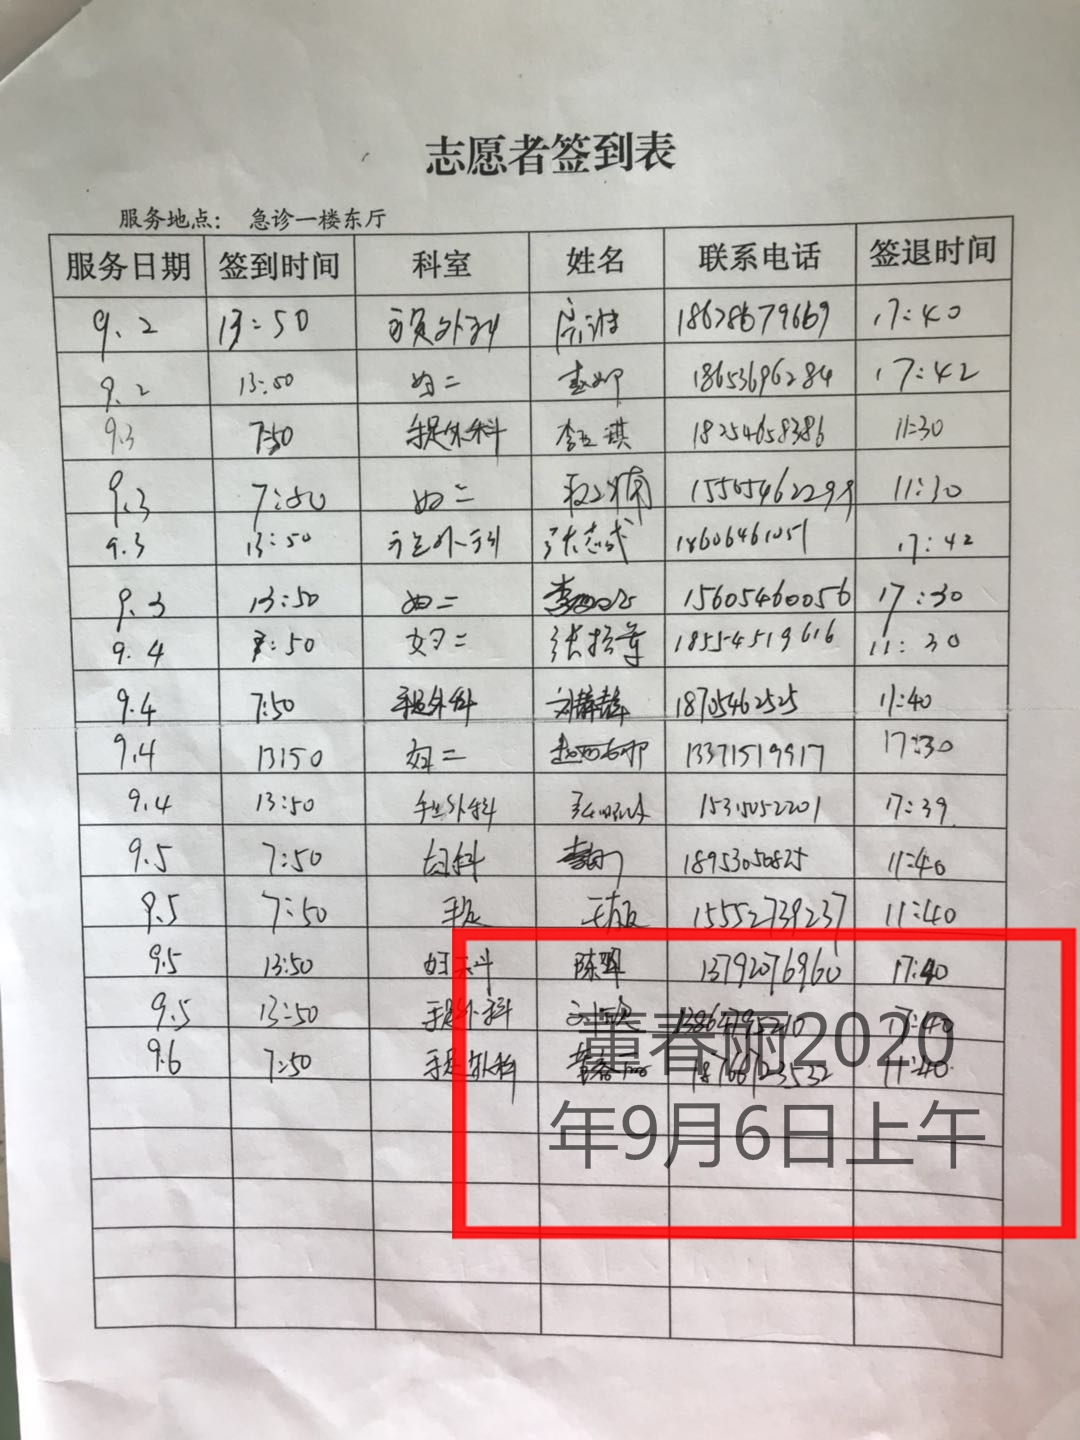 志愿者签到表
服务地点： 急诊一楼东厅
服务日期 签到时间 科室 姓名 联系电话 签退时间
9.2 13:50 手足外科 18678679669 17:40
9.2 13:50 妇二 18653696284 17:42
9.3 7:50 手足外科 李玉琪 18254658386 11:30
9.3 7:50 妇二 15505462299 11:30
9.3 13:50 手足外科 张志成 18606461051 17:42
9.3 13:50 妇二 15605460056 17:30
9.4 7:50 妇二 18554519616 11:30
9.4 7:50 手足外科 刘静静 18705462525 11:40
9.4 13:50 妇二 13371519917 17:30
9.4 13:50 手足外科 15315052201 17:39
9.5 7:50 妇科 18953050825 11:40
9.5 7:50 手足 15552739237 11:40
9.5 13:50 妇科 陈翠 13792076960 17:40
9.5 13:50 手足外科 刘欣 13864795210 17:40
9.6 7:50 手足外科 董春丽 18766723532 11:40
董春丽2020
年9月6日上午